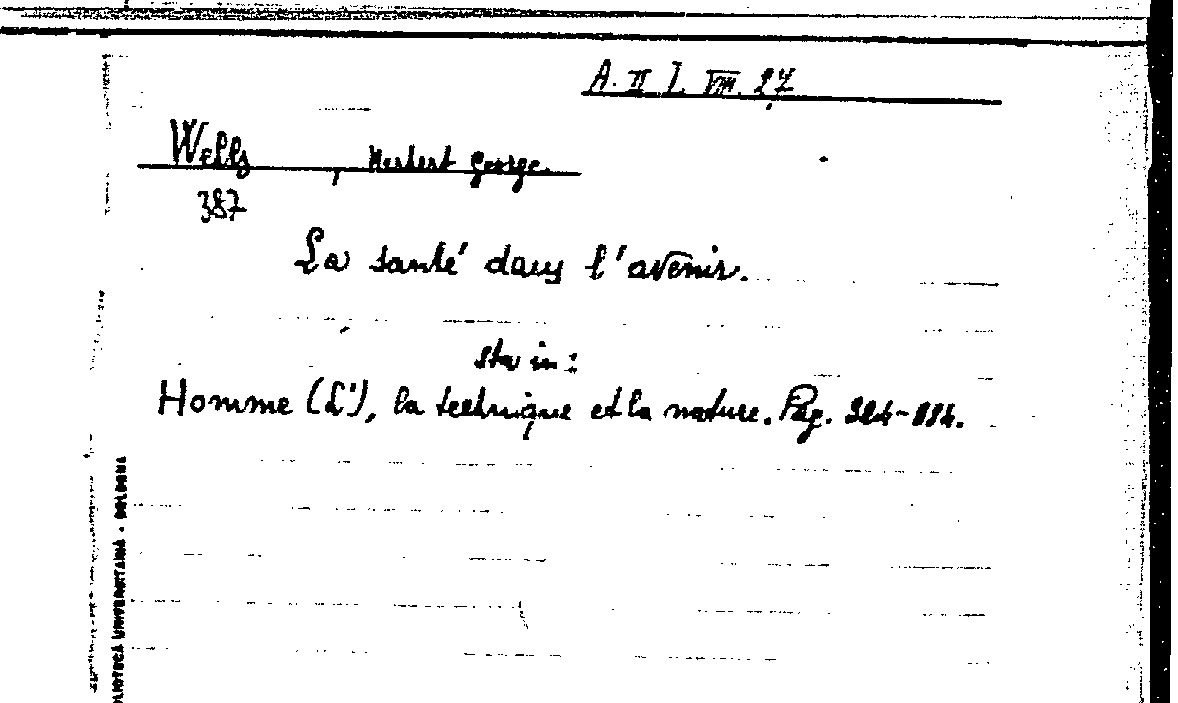 A. II I. VIII. 27
Wells, Herbert George.
387
La santé dans l'avenir.
sta in:
Homme (L'), la technique et la nature. Pag.
BLIOTECA UNIVERSITARIA - BOLOGNA